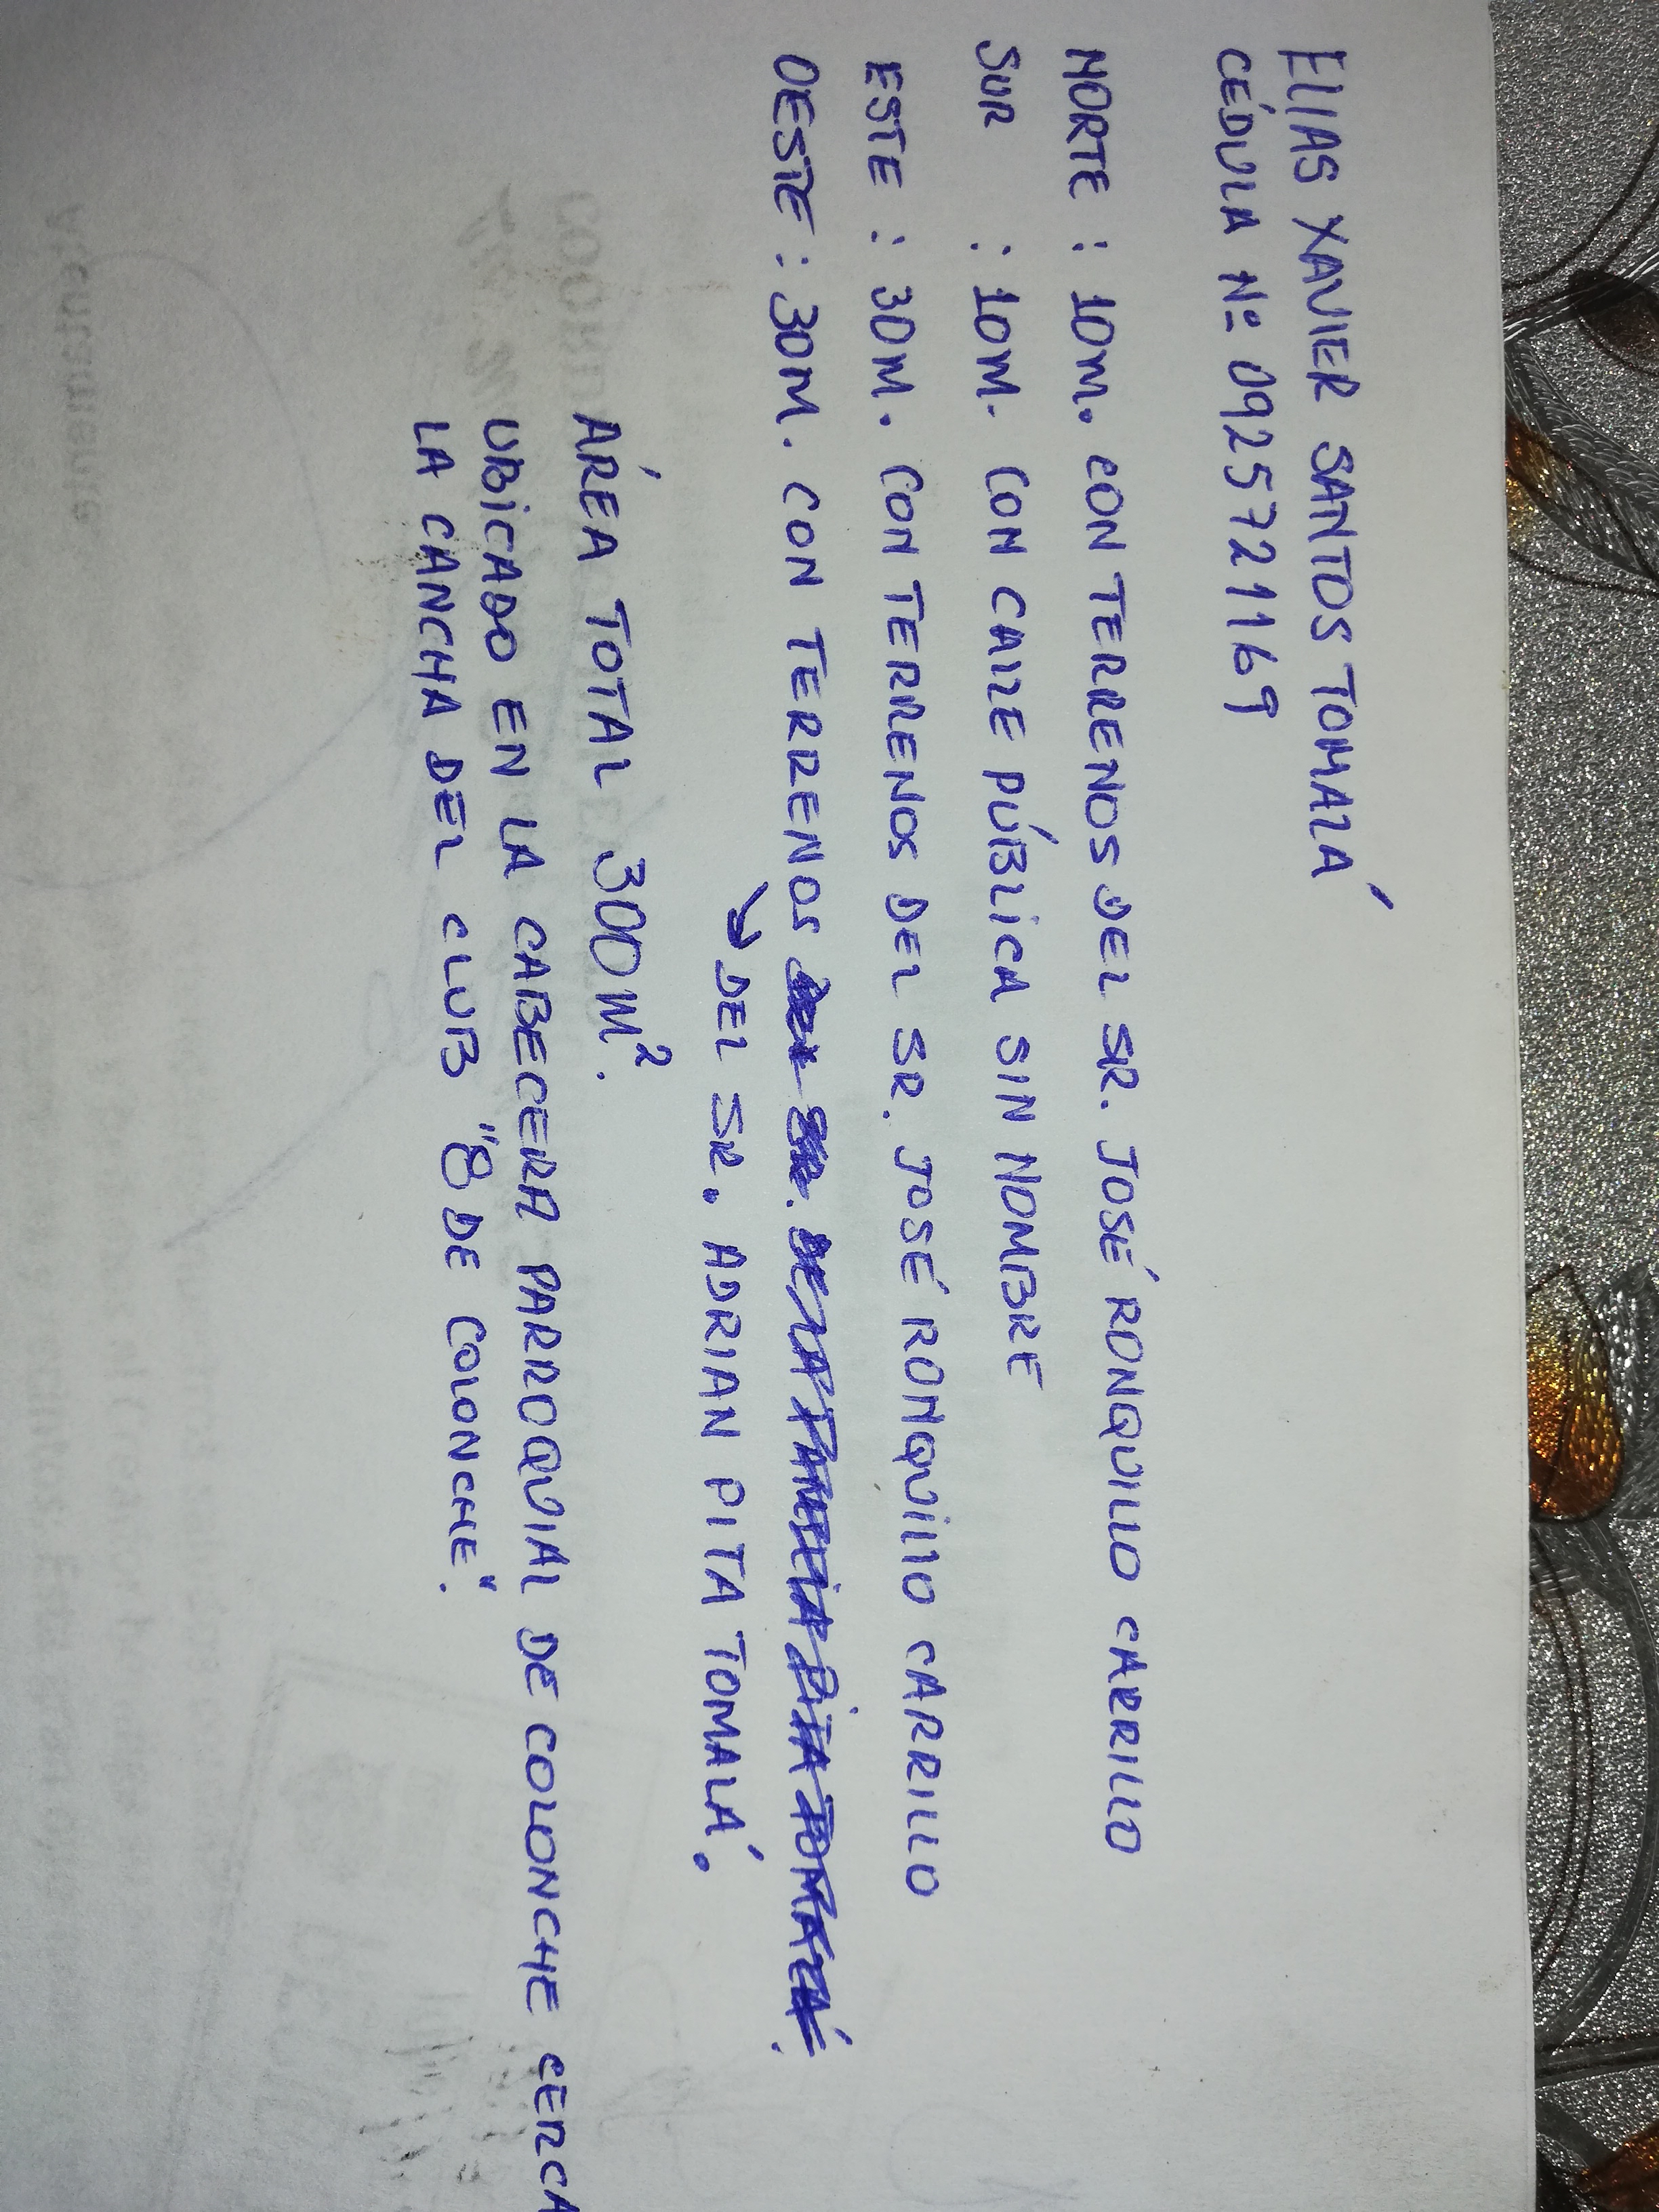 ELIAS XAVIER SANTOS TOMALÁ
CÉDULA Nº 0925721169
NORTE : 10M. CON TERRENOS DEL SR. JOSÉ RONQUILLO CARRILLO
SUR : 10M. CON CALLE PÚBLICA SIN NOMBRE
ESTE : 30M. CON TERRENOS DEL SR. JOSÉ RONQUILLO CARRILLO
OESTE : 30M. CON TERRENOS
→ DEL SR. ADRIAN PITA TOMALÁ.
ÁREA TOTAL 300M².
UBICADO EN LA CABECERA PARROQUIAL DE COLONCHE CERCA
LA CANCHA DEL CLUB "8 DE COLONCHE".